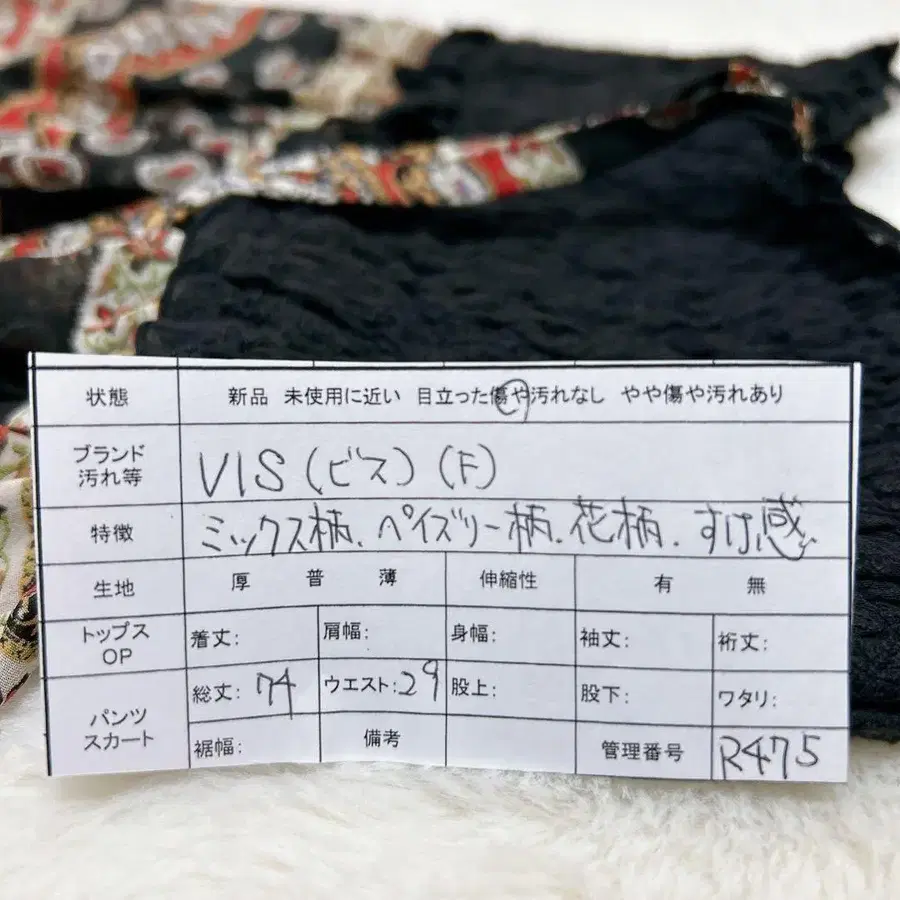 状態 新品 未使用に近い 目立った傷や汚れなし やや傷や汚れあり
ブランド
汚れ等
VIS (ビス) (F)
特徴 ミックス柄、ペイズリー柄、花柄、すけ感
生地 厚 普 薄 伸縮性 有 無
トップス
OP
着丈: 肩幅: 身幅: 袖丈: 裄丈:
パンツ
スカート
総丈: 74 ウエスト: 29 股上: 股下: ワタリ:
裾幅: 備考 管理番号 R475